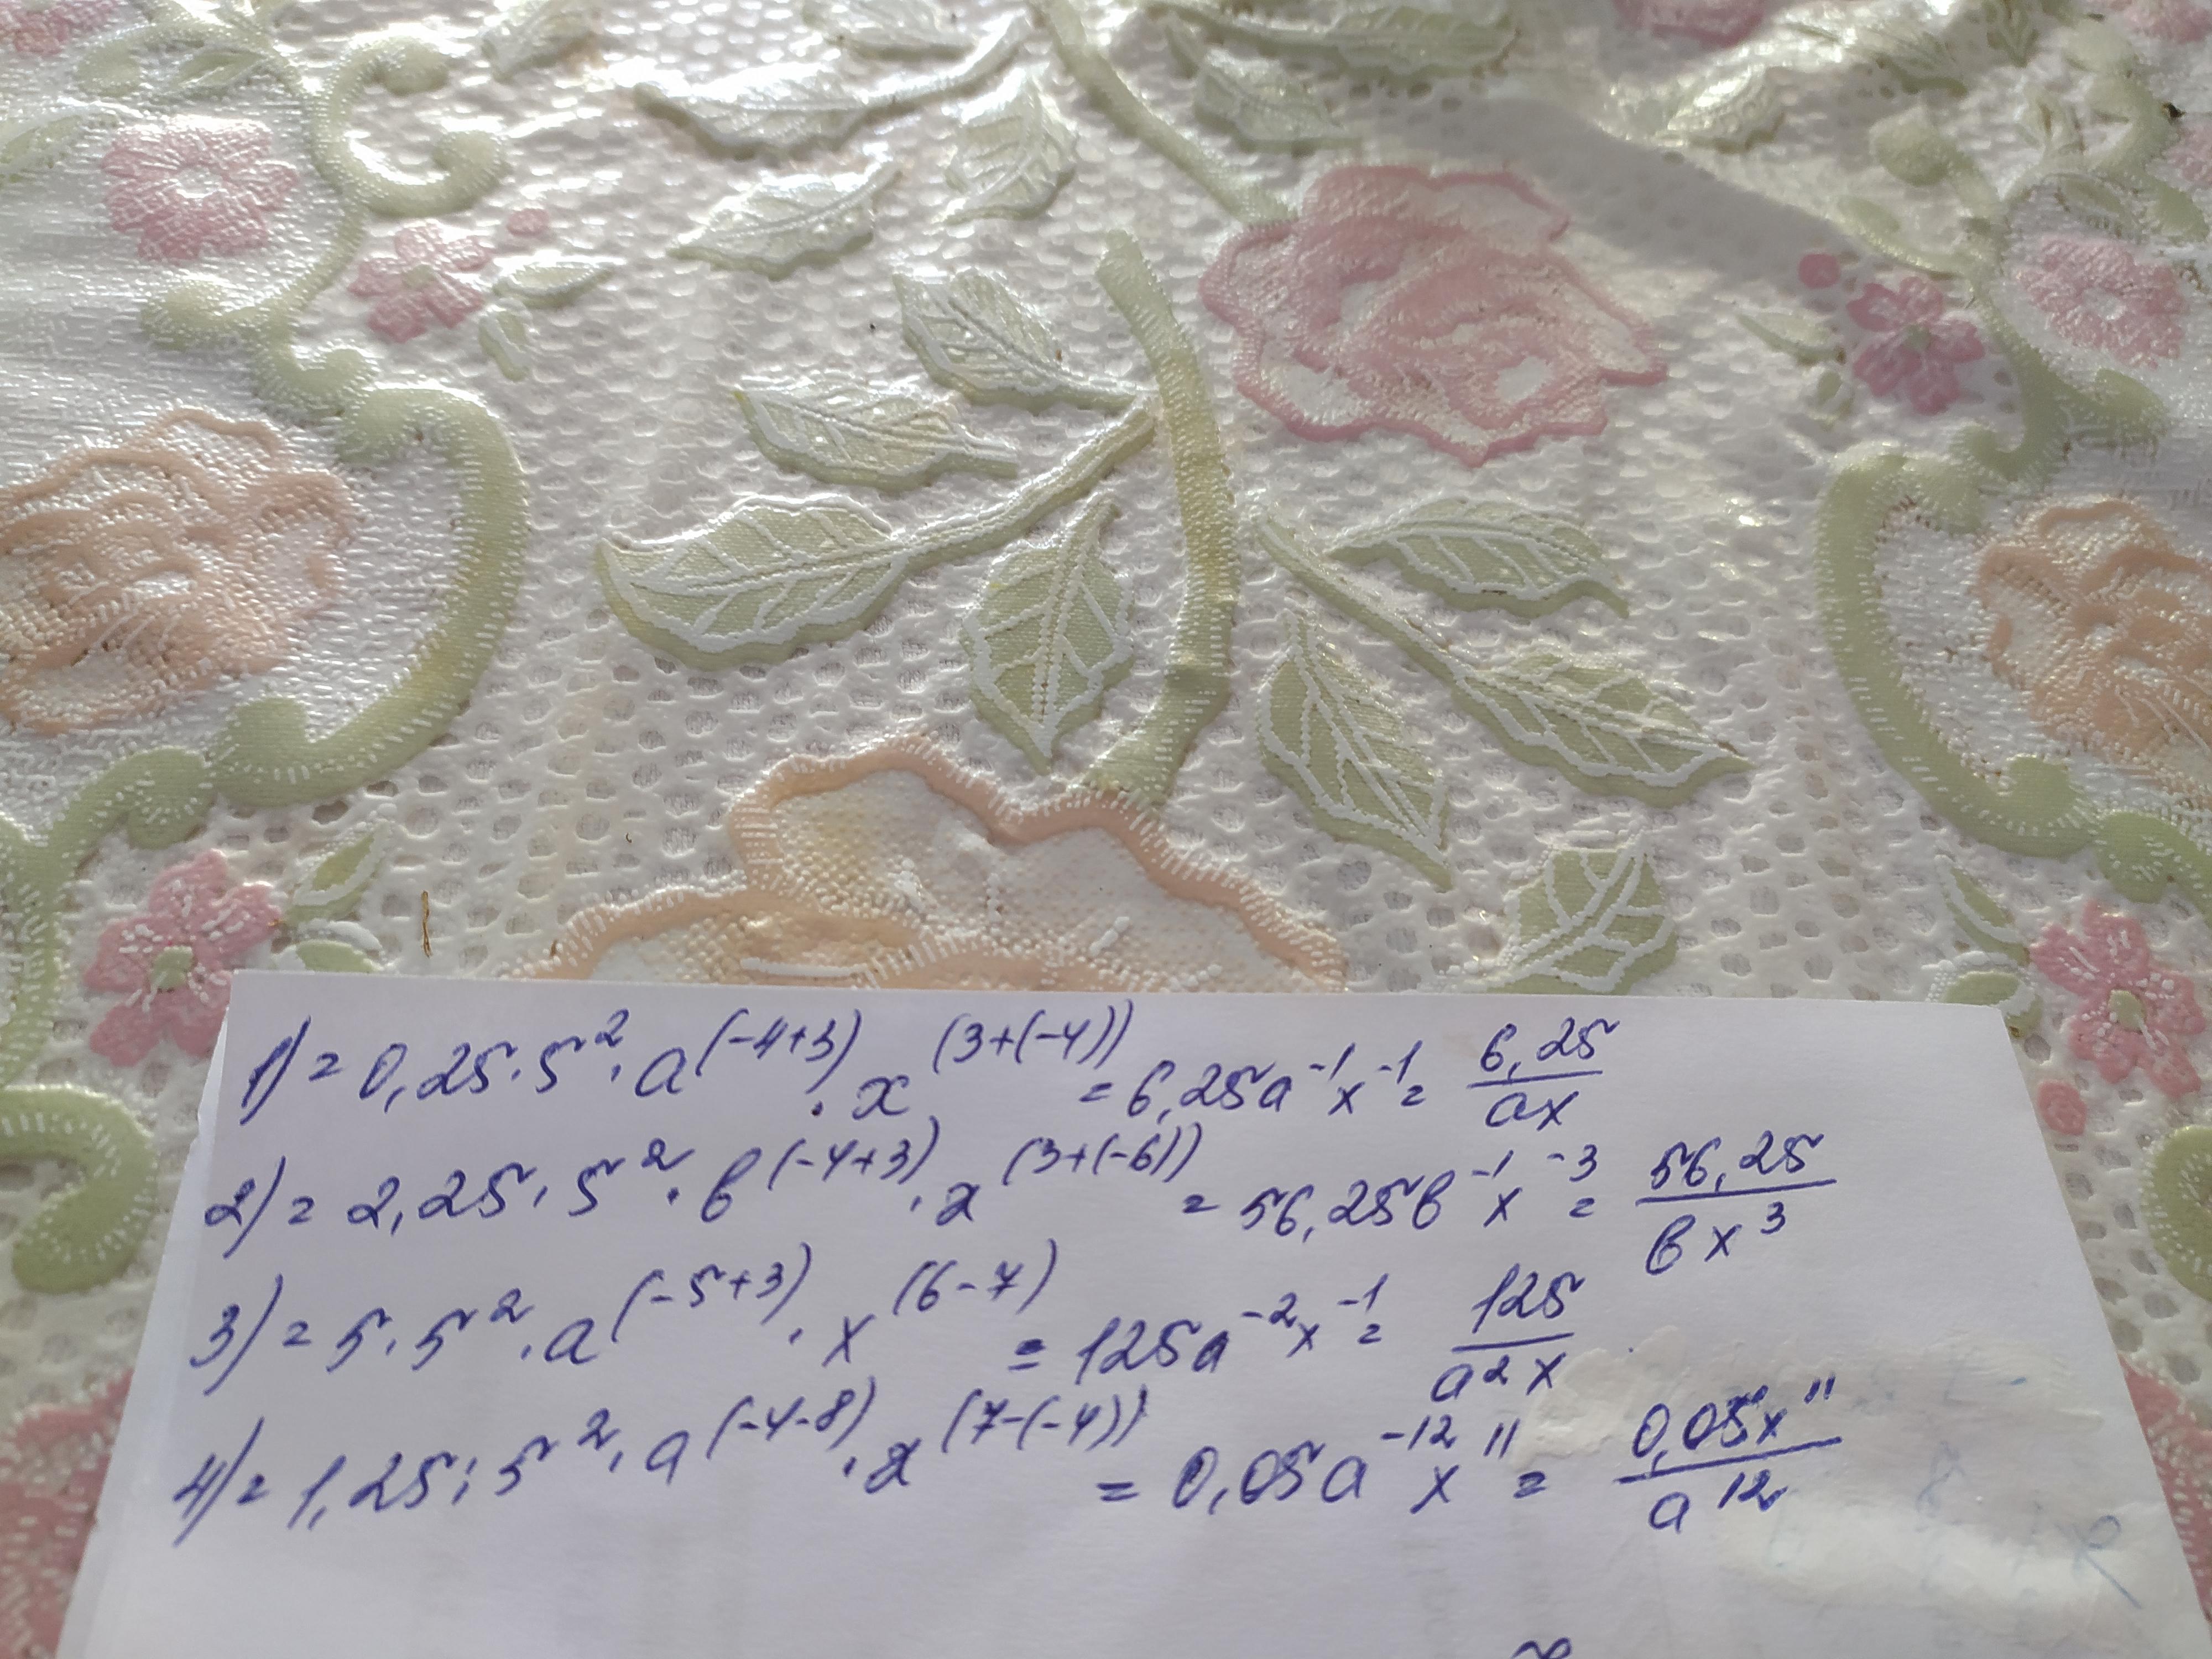 1) = 0,25 · 5² · a^(-4+3) · x^(3+(-4)) = 6,25a⁻¹x⁻¹ = 6,25/ax
2) = 2,25 · 5² · b^(-4+3) · x^(3+(-6)) = 56,25b⁻¹x⁻³ = 56,25/bx³
3) = 5 · 5² · a^(-5+3) · x^(6-7) = 125a⁻²x⁻¹ = 125/a²x
4) = 1,25 : 5² · a^(-4-8) · x^(7-(-4)) = 0,05a⁻¹²x¹¹ = 0,05x¹¹/a¹²